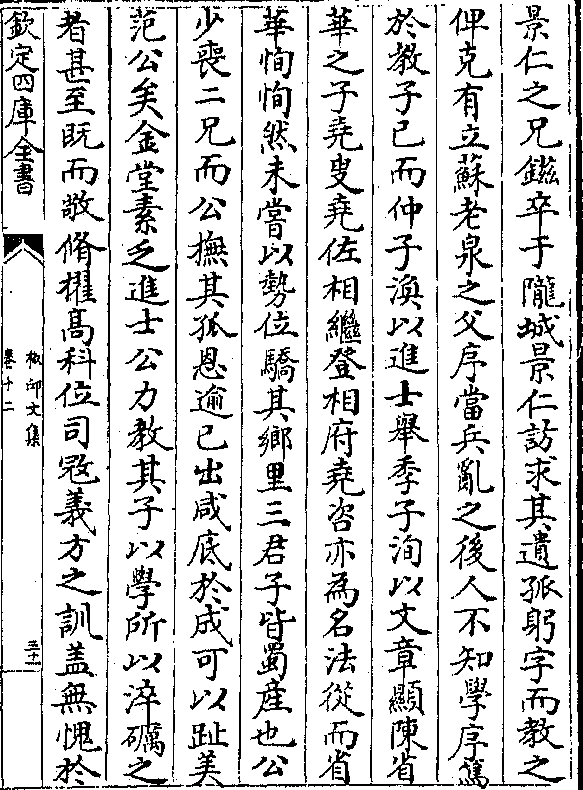 景仁之兄鎡卒于隴城景仁訪求其遺孤躬字而教之
俾克有立蘇老泉之父序當兵亂之後人不知學序篤
於教子已而仲子渙以進士舉季子洵以文章顯陳省
華之子堯叟堯佐相繼登相府堯咨亦為名法從而省
華恂恂然未嘗以勢位驕其鄉里三君子皆蜀產也公
少喪二兄而公撫其孤恩逾已出咸底於成可以趾美
范公矣金堂素乏進士公力教其子以學所以淬礪之
者甚至既而敬脩擢高科位司寇義方之訓盖無愧於
欽定四庫全書
文集
卷十二
五十一